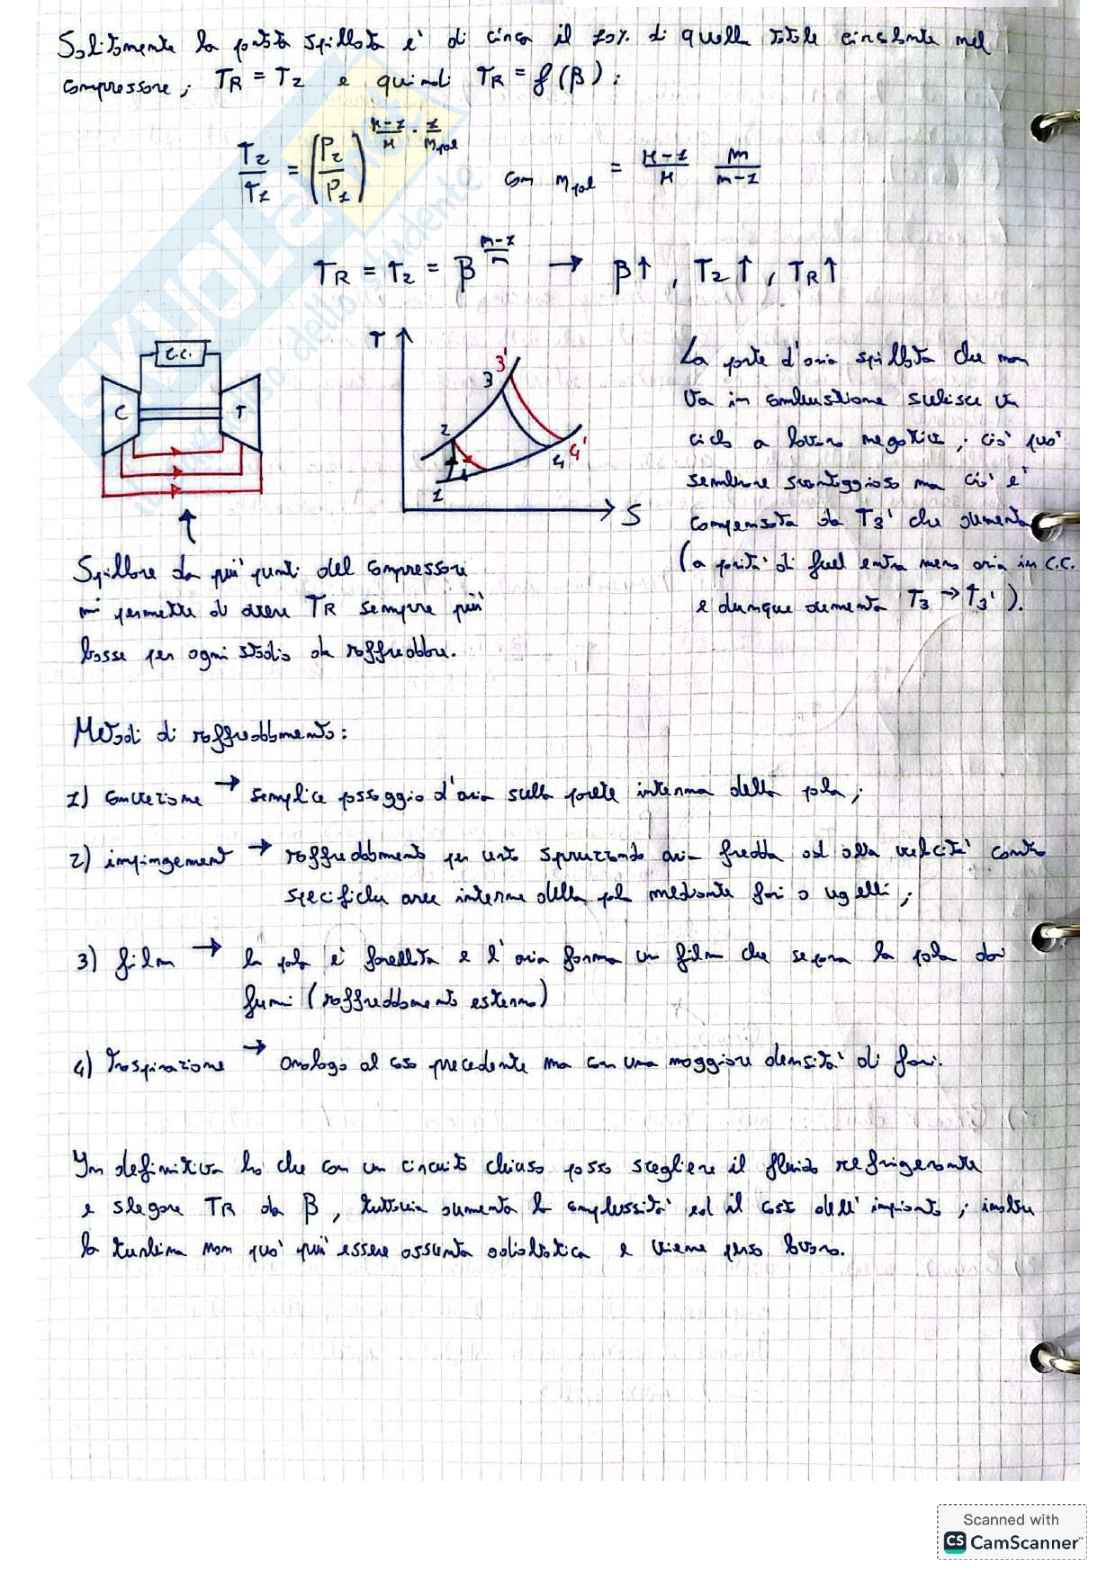 Solitamente la portata spillata è di circa il 20% di quella totale circolante nel
compressore; TR = T2 e quindi TR = f(β):
T2/T1 = (P2/P1)^(κ-1/κ · 1/mpol)    con mpol = κ-1/κ  m/m-1
TR = T2 = β^(m-1/m) → β↑, T2↑, TR↑
C.C.
C
T
T
S
1
2
3
3'
4
4'
La parte d'aria spillata che non
va in combustione subisce un
ciclo a lavoro negativo; ciò può
sembrare svantaggioso ma ciò è
compensato da T3' che aumenta
(a parità di fuel entra meno aria in C.C.
e dunque aumenta T3 → T3').
Spillare da più punti del compressore
mi permette di avere TR sempre più
basse per ogni stadio da raffreddare.
Metodi di raffreddamento:
1) convezione → semplice passaggio d'aria sulla parete interna della pala;
2) impingement → raffreddamento per urto spruzzando aria fredda ad alta velocità contro
specifiche aree interne della pala mediante fori o ugelli;
3) film → la pala è forellata e l'aria forma un film che separa la pala dai
fumi (raffreddamento esterno)
4) traspirazione → analogo al caso precedente ma con una maggiore densità di fori.
In definitiva ho che con un circuito chiuso posso scegliere il fluido refrigerante
e slegare TR da β, tuttavia aumenta la complessità ed il costo dell'impianto; inoltre
la turbina non può più essere assunta adiabatica e viene perso lavoro.
SKUOLA.net
dello studente
Scanned with
CS CamScanner